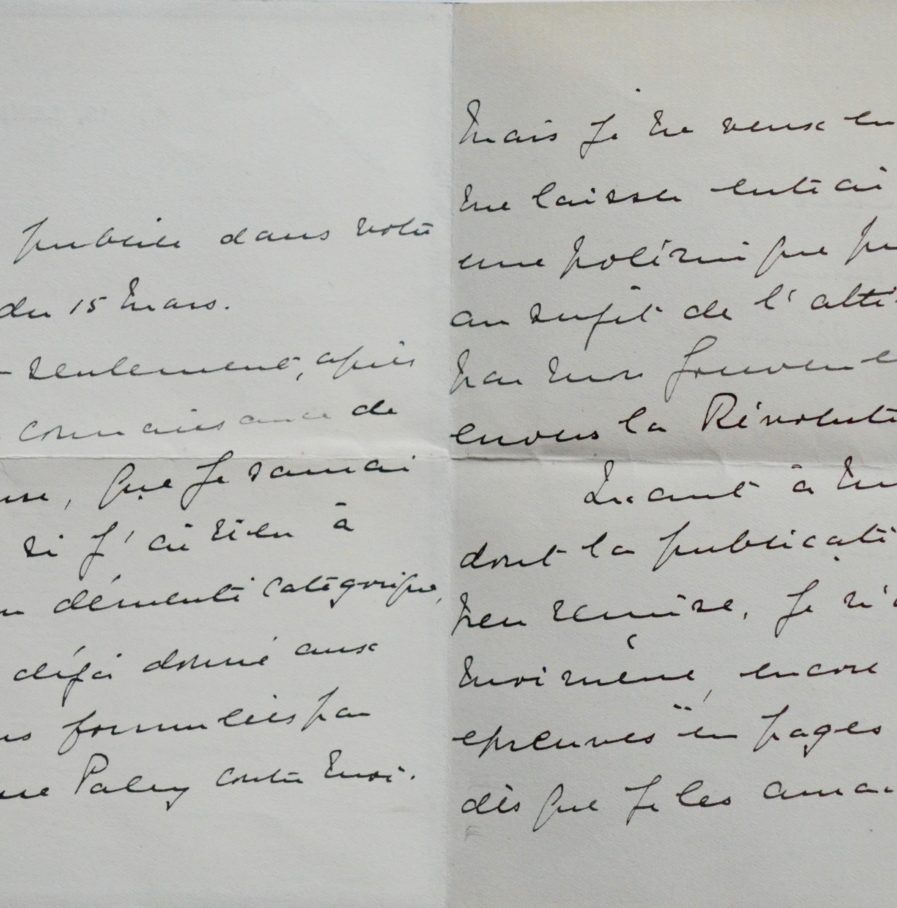 publiée dans votre
du 15 Mars.
seulement, après
connaissance de
que je saurai
si j'ai rien à
démenti catégorique,
déjà donné aux
formulées par
Paley contre moi.
Mais je ne veux en
me laisser entraî
une polémique pu
au sujet de l'atti
par mon Gouverne
envers la Révoluti
Quant à m
dont la publicati
peu remise, je n'
moi même, encore
epreuves "en pages
dès que je les aurai